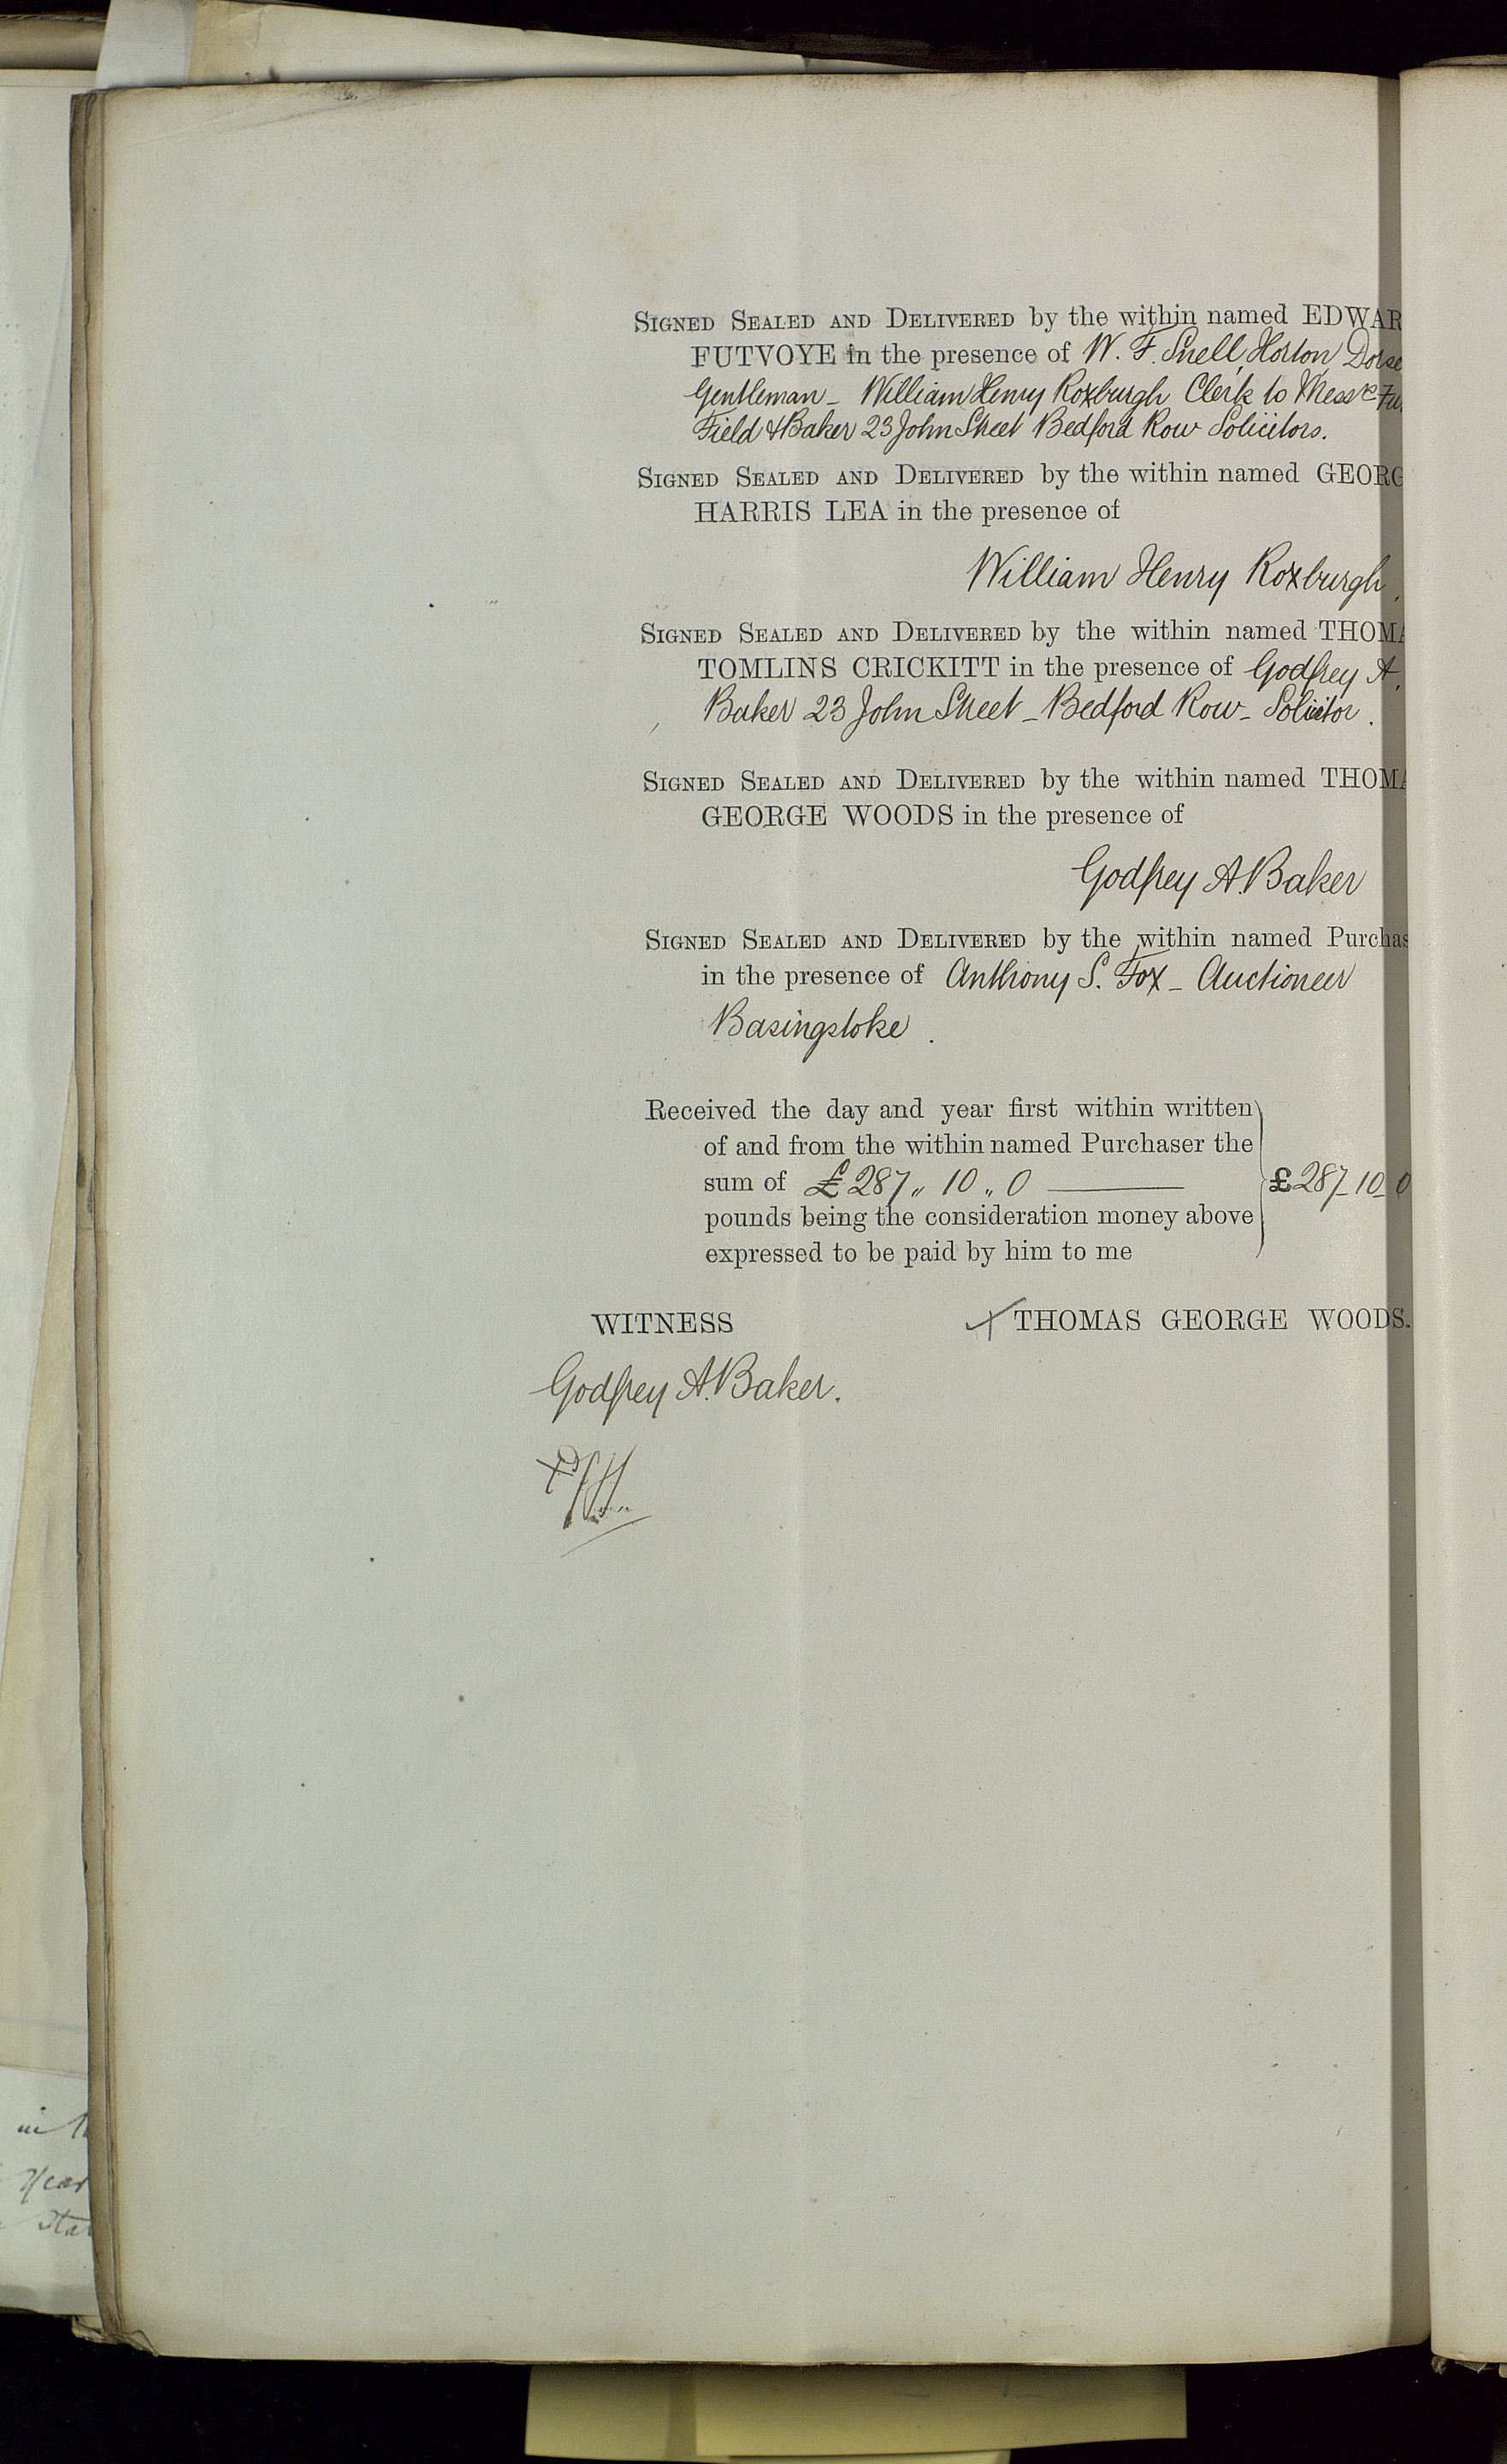 SIGNED SEALED AND DELIVERED by the within named EDWAR
FUTVOYE in the presence of W. F. Snell, Horton, Dorse
Gentleman - William Henry Roxburgh Clerk to Messrs Fu
Field & Baker 23 John Street Bedford Row Solicitors.
SIGNED SEALED AND DELIVERED by the within named GEORG
HARRIS LEA in the presence of
William Henry Roxburgh.
SIGNED SEALED AND DELIVERED by the within named THOMA
TOMLINS CRICKITT in the presence of Godfrey A.
Baker 23 John Street - Bedford Row - Solicitor.
SIGNED SEALED AND DELIVERED by the within named THOMA
GEORGE WOODS in the presence of
Godfrey A. Baker
SIGNED SEALED AND DELIVERED by the within named Purchas
in the presence of Anthony S. Fox - Auctioneer
Basingstoke.
Received the day and year first within written
of and from the within named Purchaser the
sum of £287 „ 10 „ 0 £287-10-0
pounds being the consideration money above
expressed to be paid by him to me
WITNESS THOMAS GEORGE WOODS.
Godfrey A. Baker.
in
Year